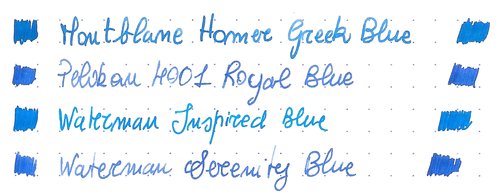 Montblanc Homer Greek Blue
Pelikan 4001 Royal Blue
Waterman Inspired Blue
Waterman Serenity Blue